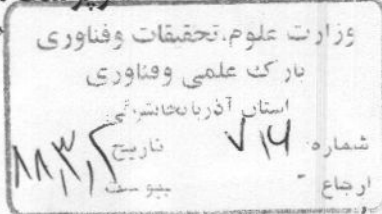 وزارت علوم، تحقیقات وفناوری
پارک علمی وفناوری
استان آذربایجانشرقی
شماره ۷۱۶ تاریخ ۸۸,۳,۲
ارجاع - پیوست